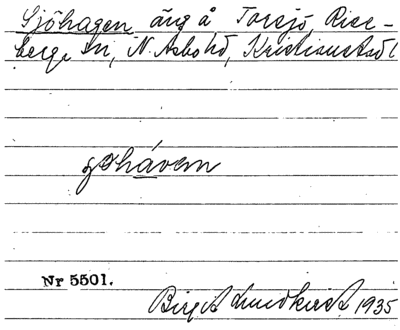 Sjöhagen äng å Torsjö, Rise-
berga sn, N. Åsbo hd, Kristianstads l
Nr 5501.
Birgit Lundkvist 1935